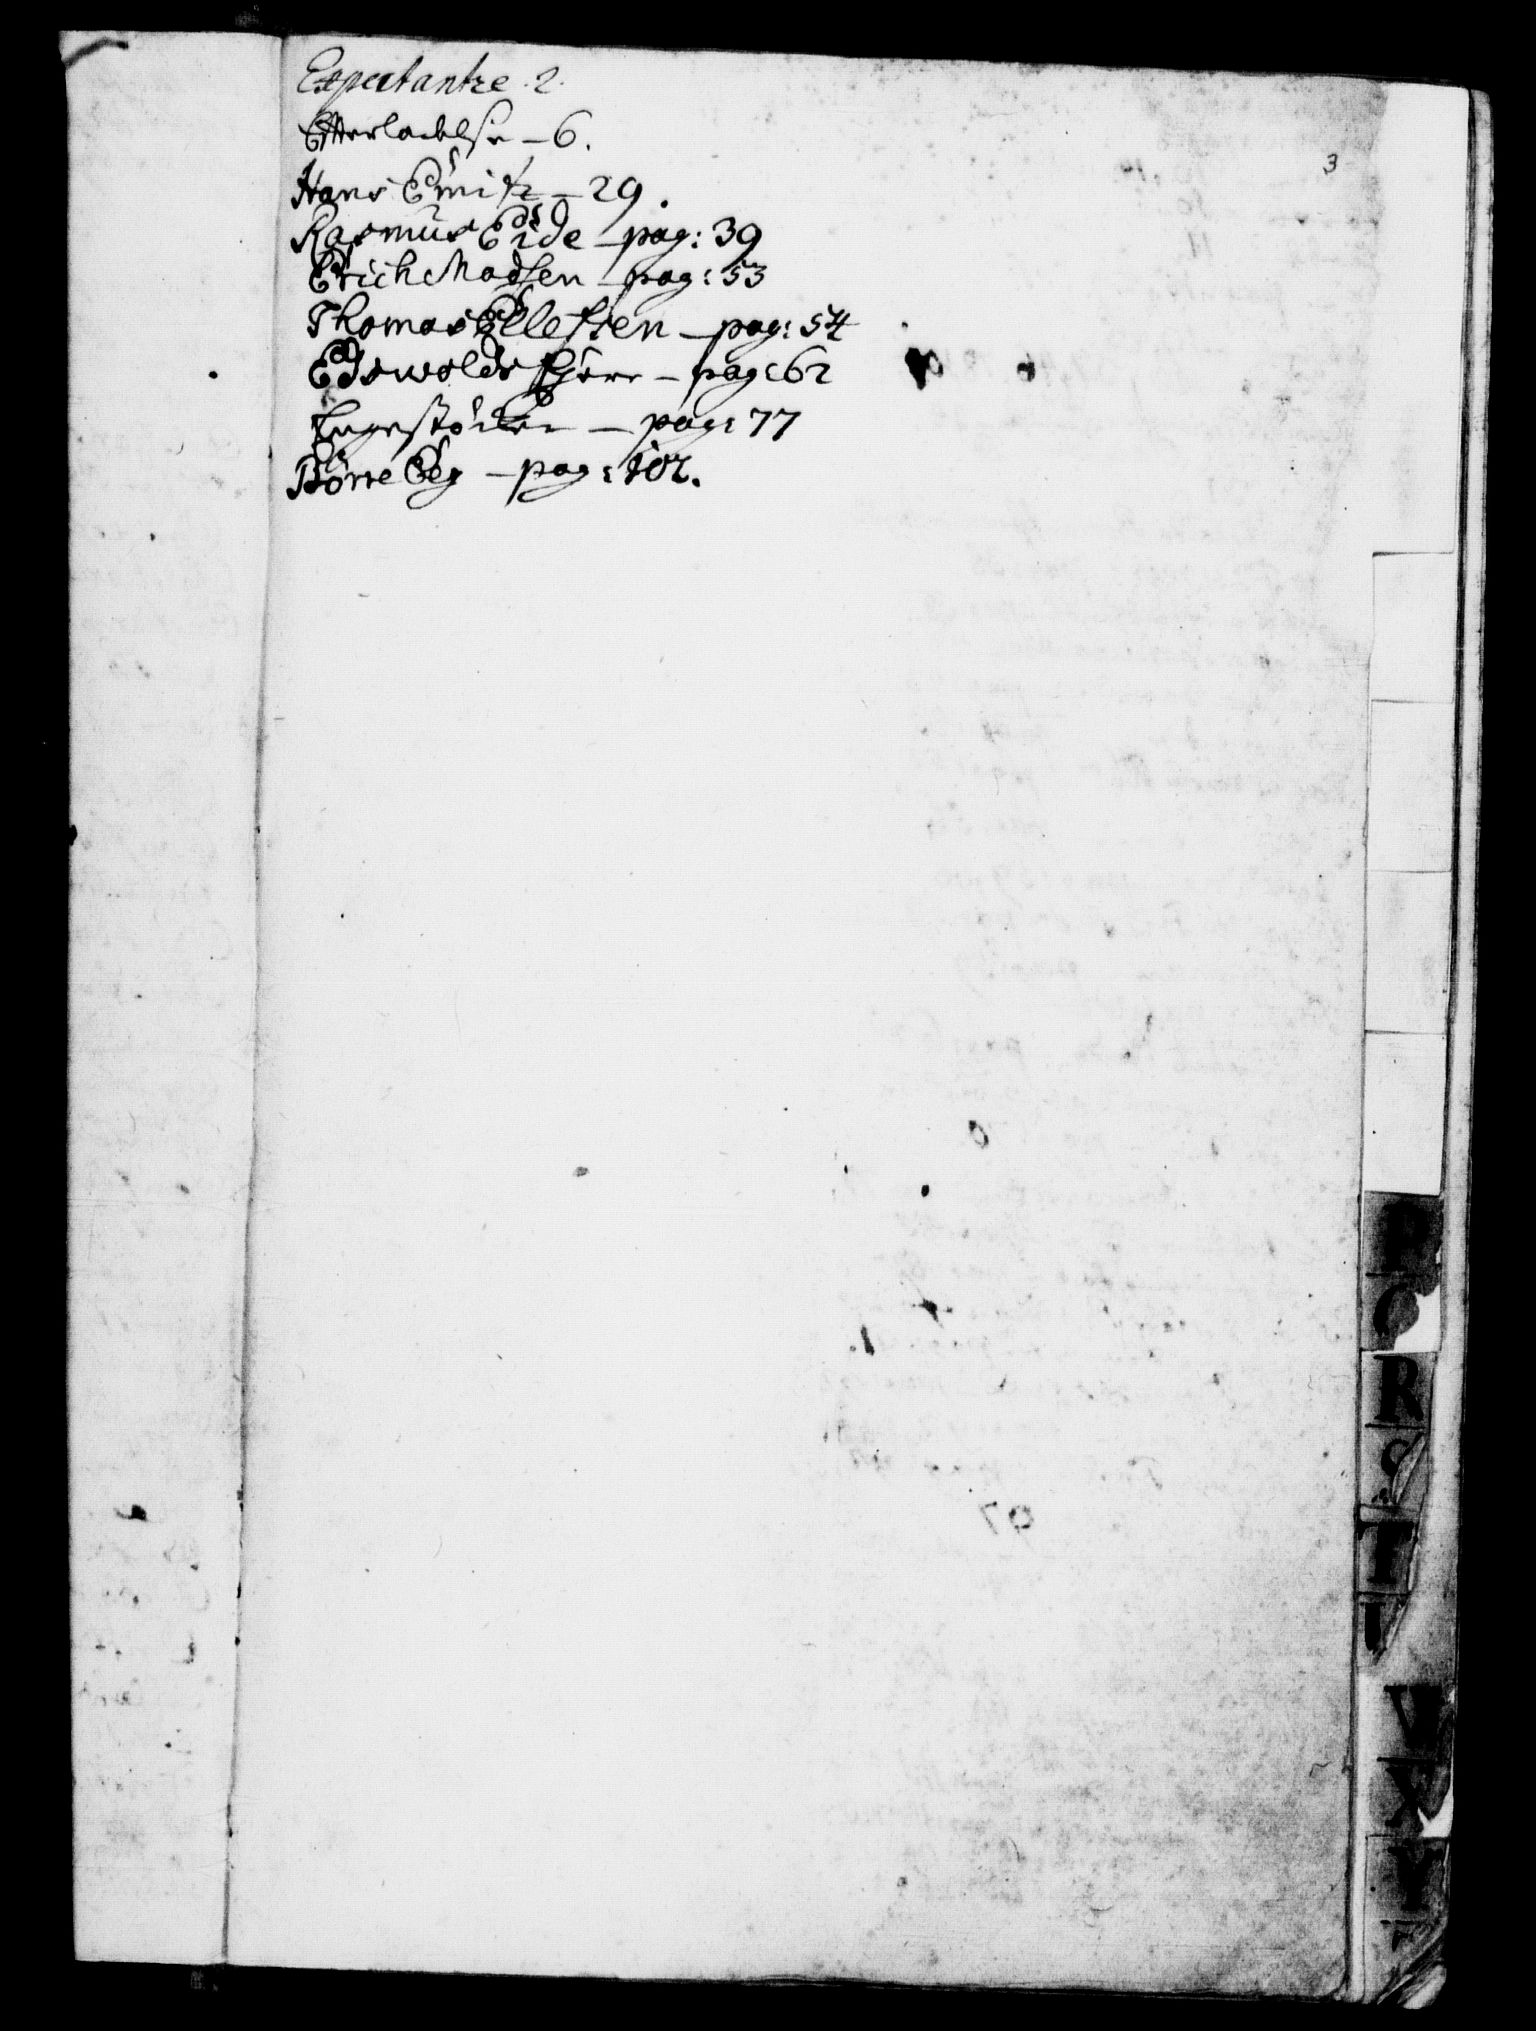 Expectantze. 2.
Efterladelse – 6.
3
Hans Emitz – 29.
Rasmus Eide – pag: 39
Erich Madsen – pag: 53
Thomas Ellefsen – pag: 54
Edswolds – pag: 62
– pag: 77
Börre Eeg – pag: 102.
P
Q
R
S
T
V
W
X
Y